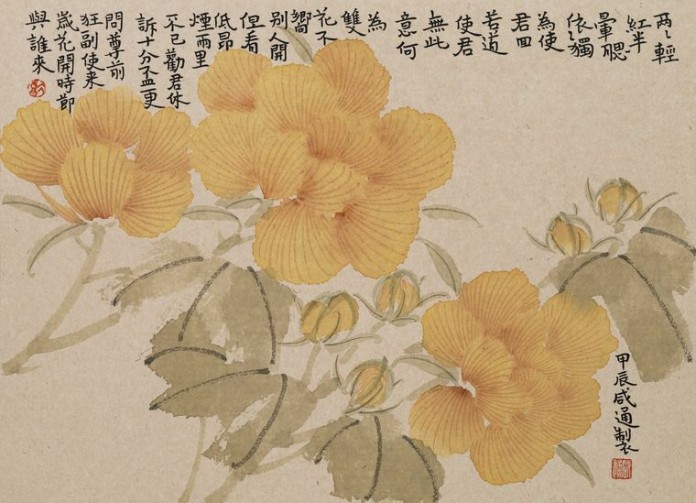 两〻輕
紅半
暈腮
依〻獨
為使
君回
若道
使君
無此
意何
為
雙
花不
嚮
别人開
但看
低昂
煙雨里
不已勸君休
訴十分盃更
問尊前
狂副使来
歲花開時節
與誰來
甲辰咸通製